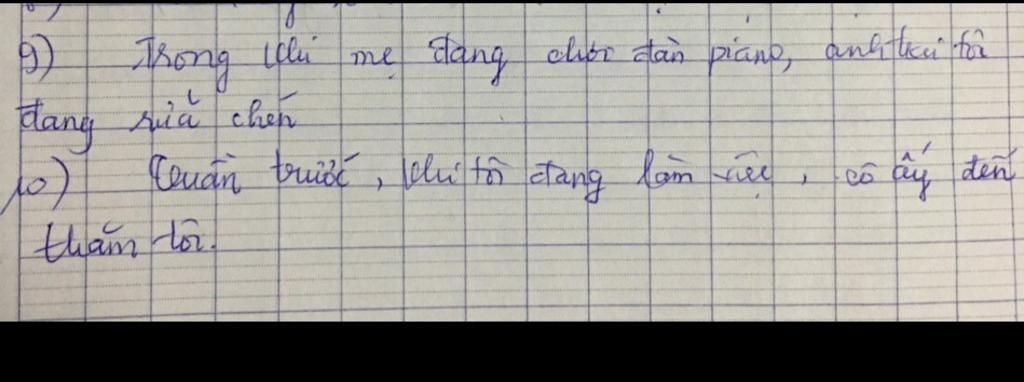 9) Trong khi mẹ đang chơi đàn piano, anh trai tôi
đang rửa chén
10) Tuần trước, khi tôi đang làm việc, cô ấy đến
thăm tôi.